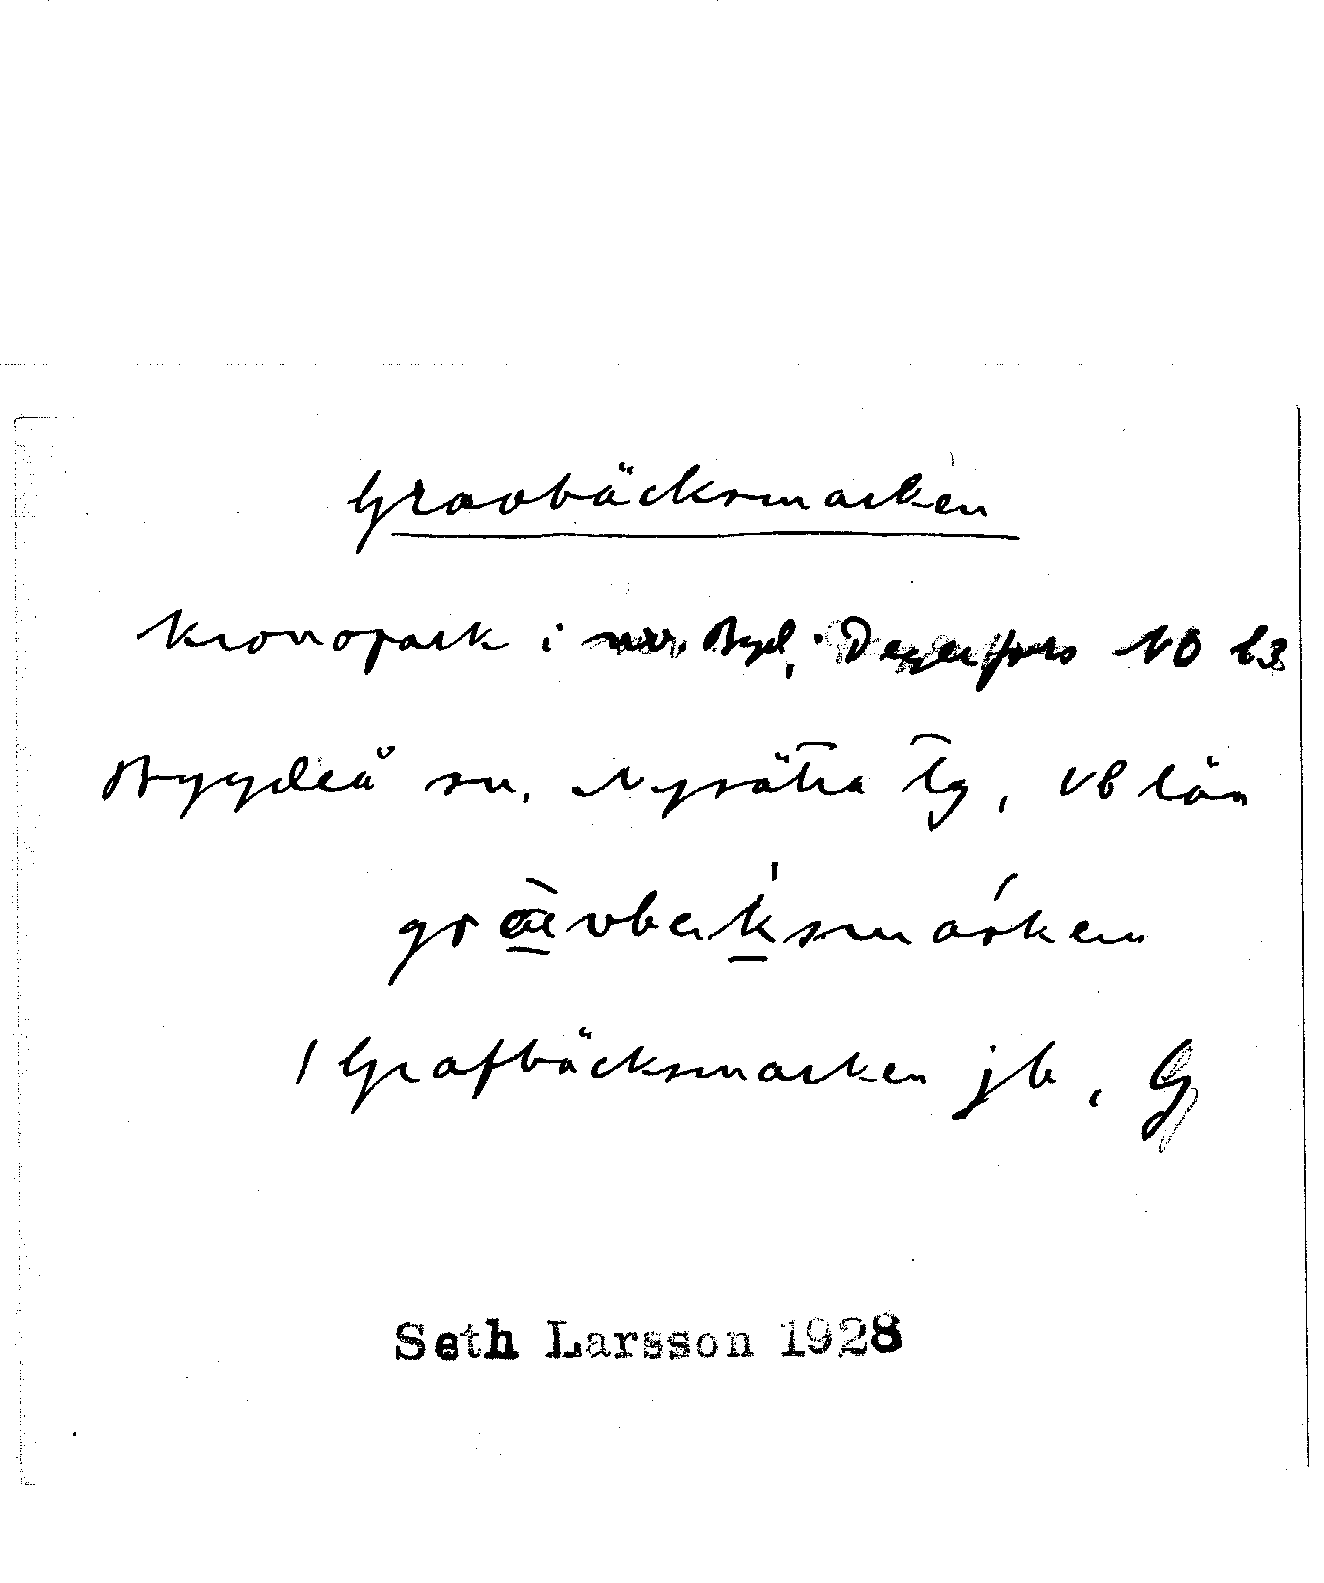 Gravbäcksmarken
Kronopark i Bygd. Degerfors NO b3
Bygdeå sn, Nysätra tg, VB län
grævbeksmarken
/ Grafbäcksmarken jb, G
Seth Larsson 1928